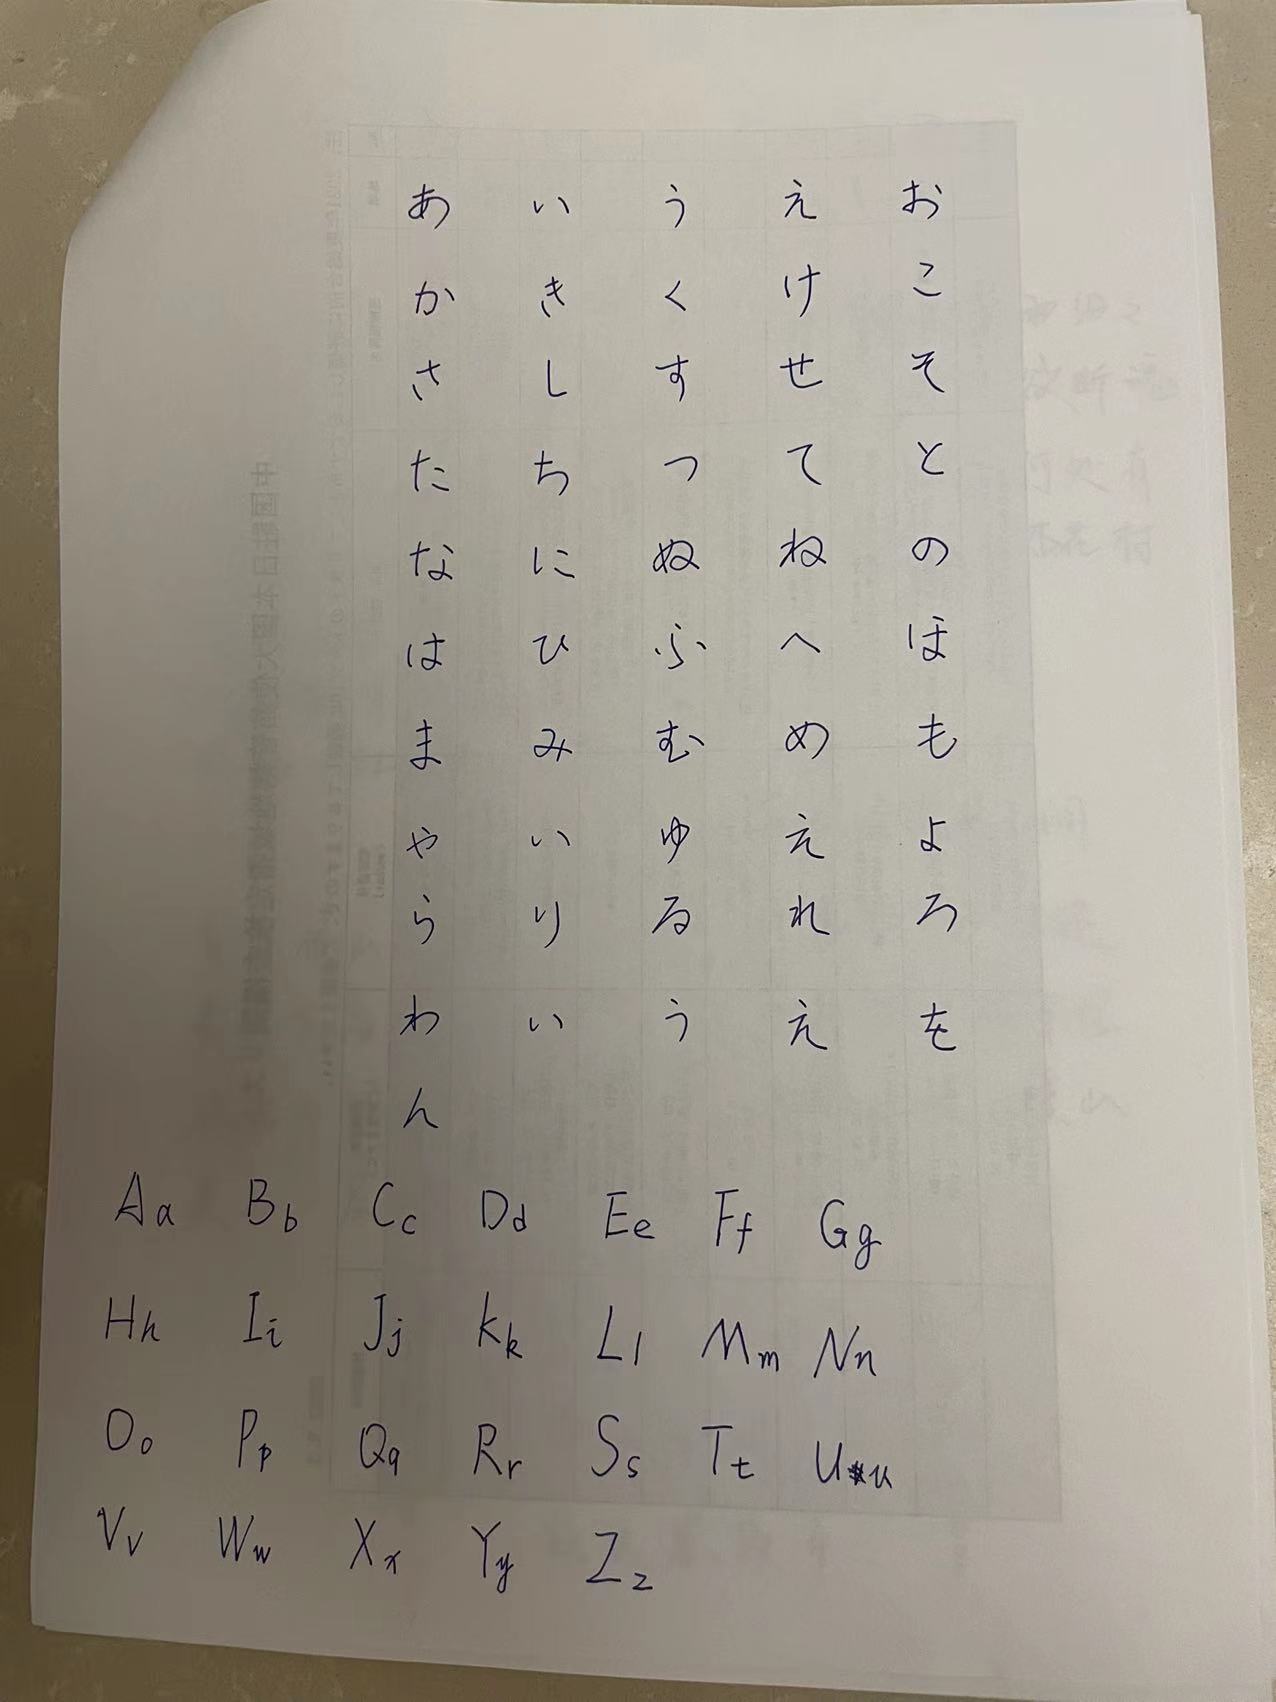 あ い う え お
か き く け こ
さ し す せ そ
た ち つ て と
な に ぬ ね の
は ひ ふ へ ほ
ま み む め も
や い ゆ え よ
ら り る れ ろ
わ い う え を
ん
Aa Bb Cc Dd Ee Ff Gg
Hh Ii Jj Kk Ll Mm Nn
Oo Pp Qq Rr Ss Tt Uu
Vv Ww Xx Yy Zz